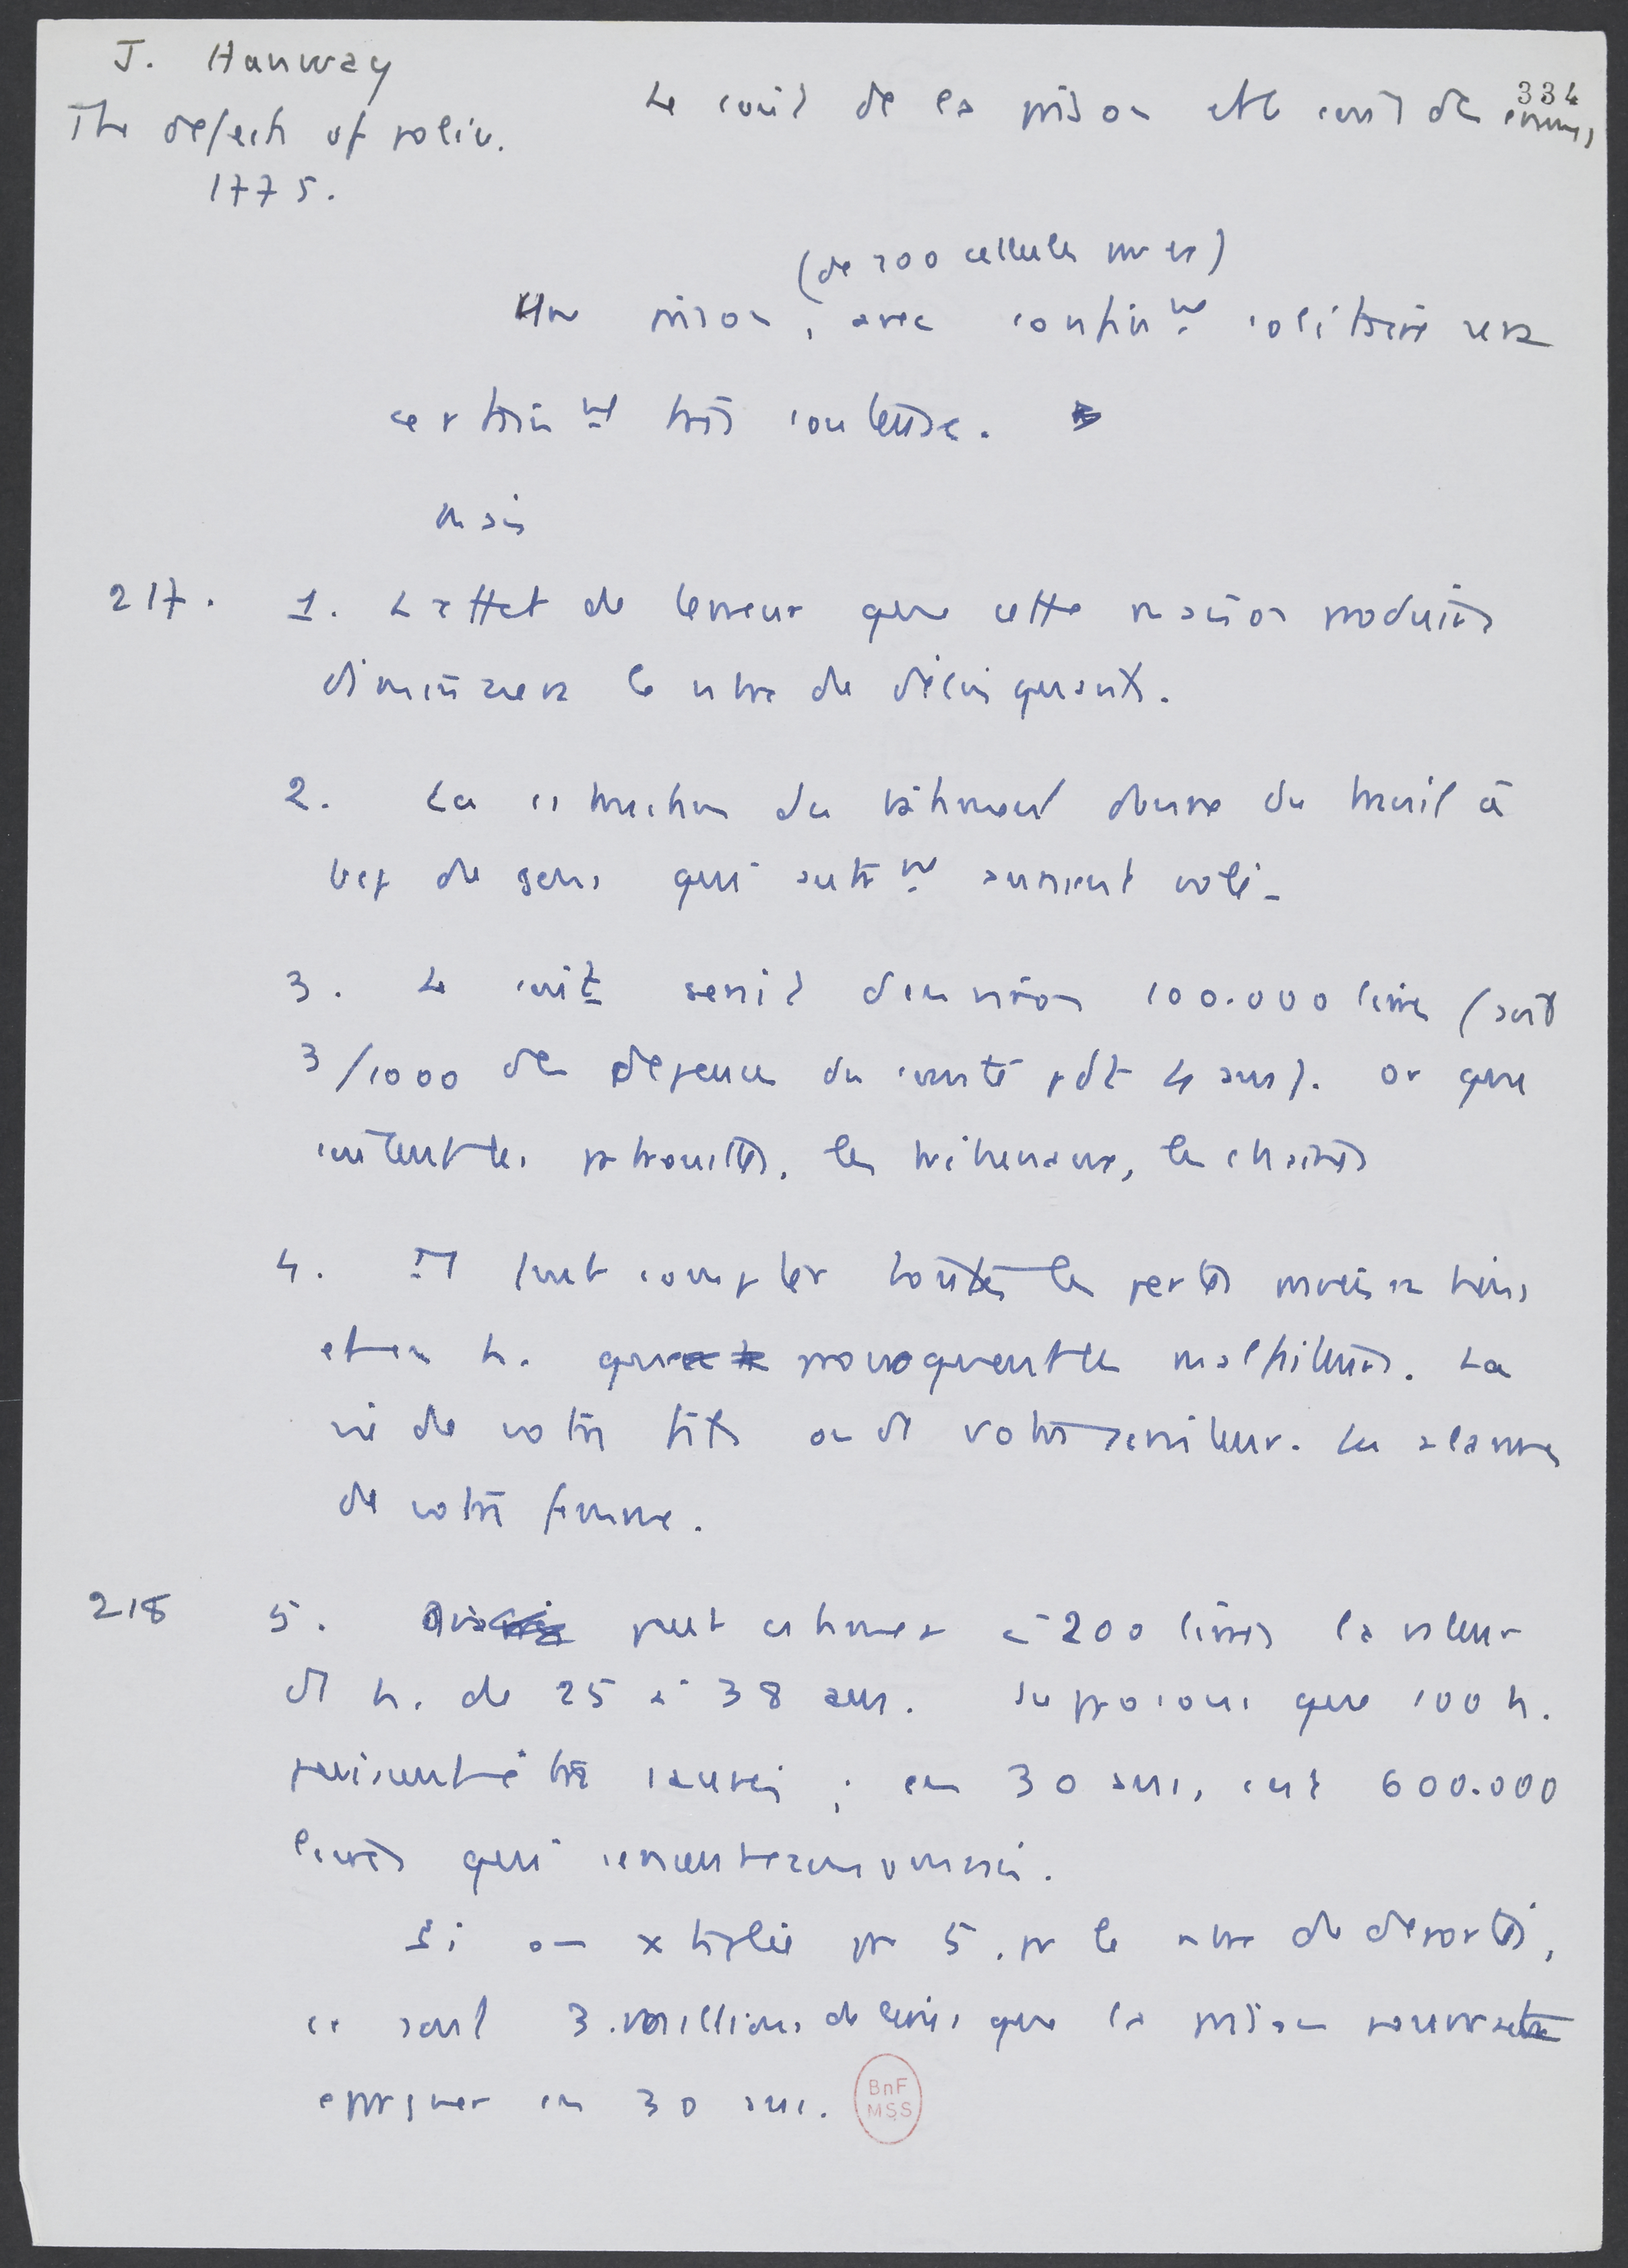 J. Hanway
The defects of police.
1775.
334
Le coût de la prison et le coût des crimes
(de 200 cellules
Une prison, avec confint solitaire sera
certaint très coûteuse.
Mais
217. 1. L'effet de terreur que cette maison produira
diminuera le nbre de délinquants.
2. La cstruction du bâtiment donne du travail à
bcp de gens qui autrt auraient volé.
3. Le coût serait d'environ 100.000 livres (soit
3/1000 des dépenses du comté pdt 4 ans). Or que
coûtent les patrouilles, les tribunaux, les chaînes
4. Il faut compter toutes les pertes
et en h. que provoquent les malfaiteurs. La
vie de votre fils ou de votre serviteur. Les alarmes
de votre femme.
218 5. On peut estimer à 200 livres la valeur
d' h. de 25 à 38 ans. Supposons que 100 h.
puissent être sauvés ; en 30 ans, c'est 600.000
livres qui seront économisées.
Si on xtiplie par 5, pr le nbre de déportés,
ce sont 3 millions de livres que la prison pourrait
épargner en 30 ans.
BnF
MSS